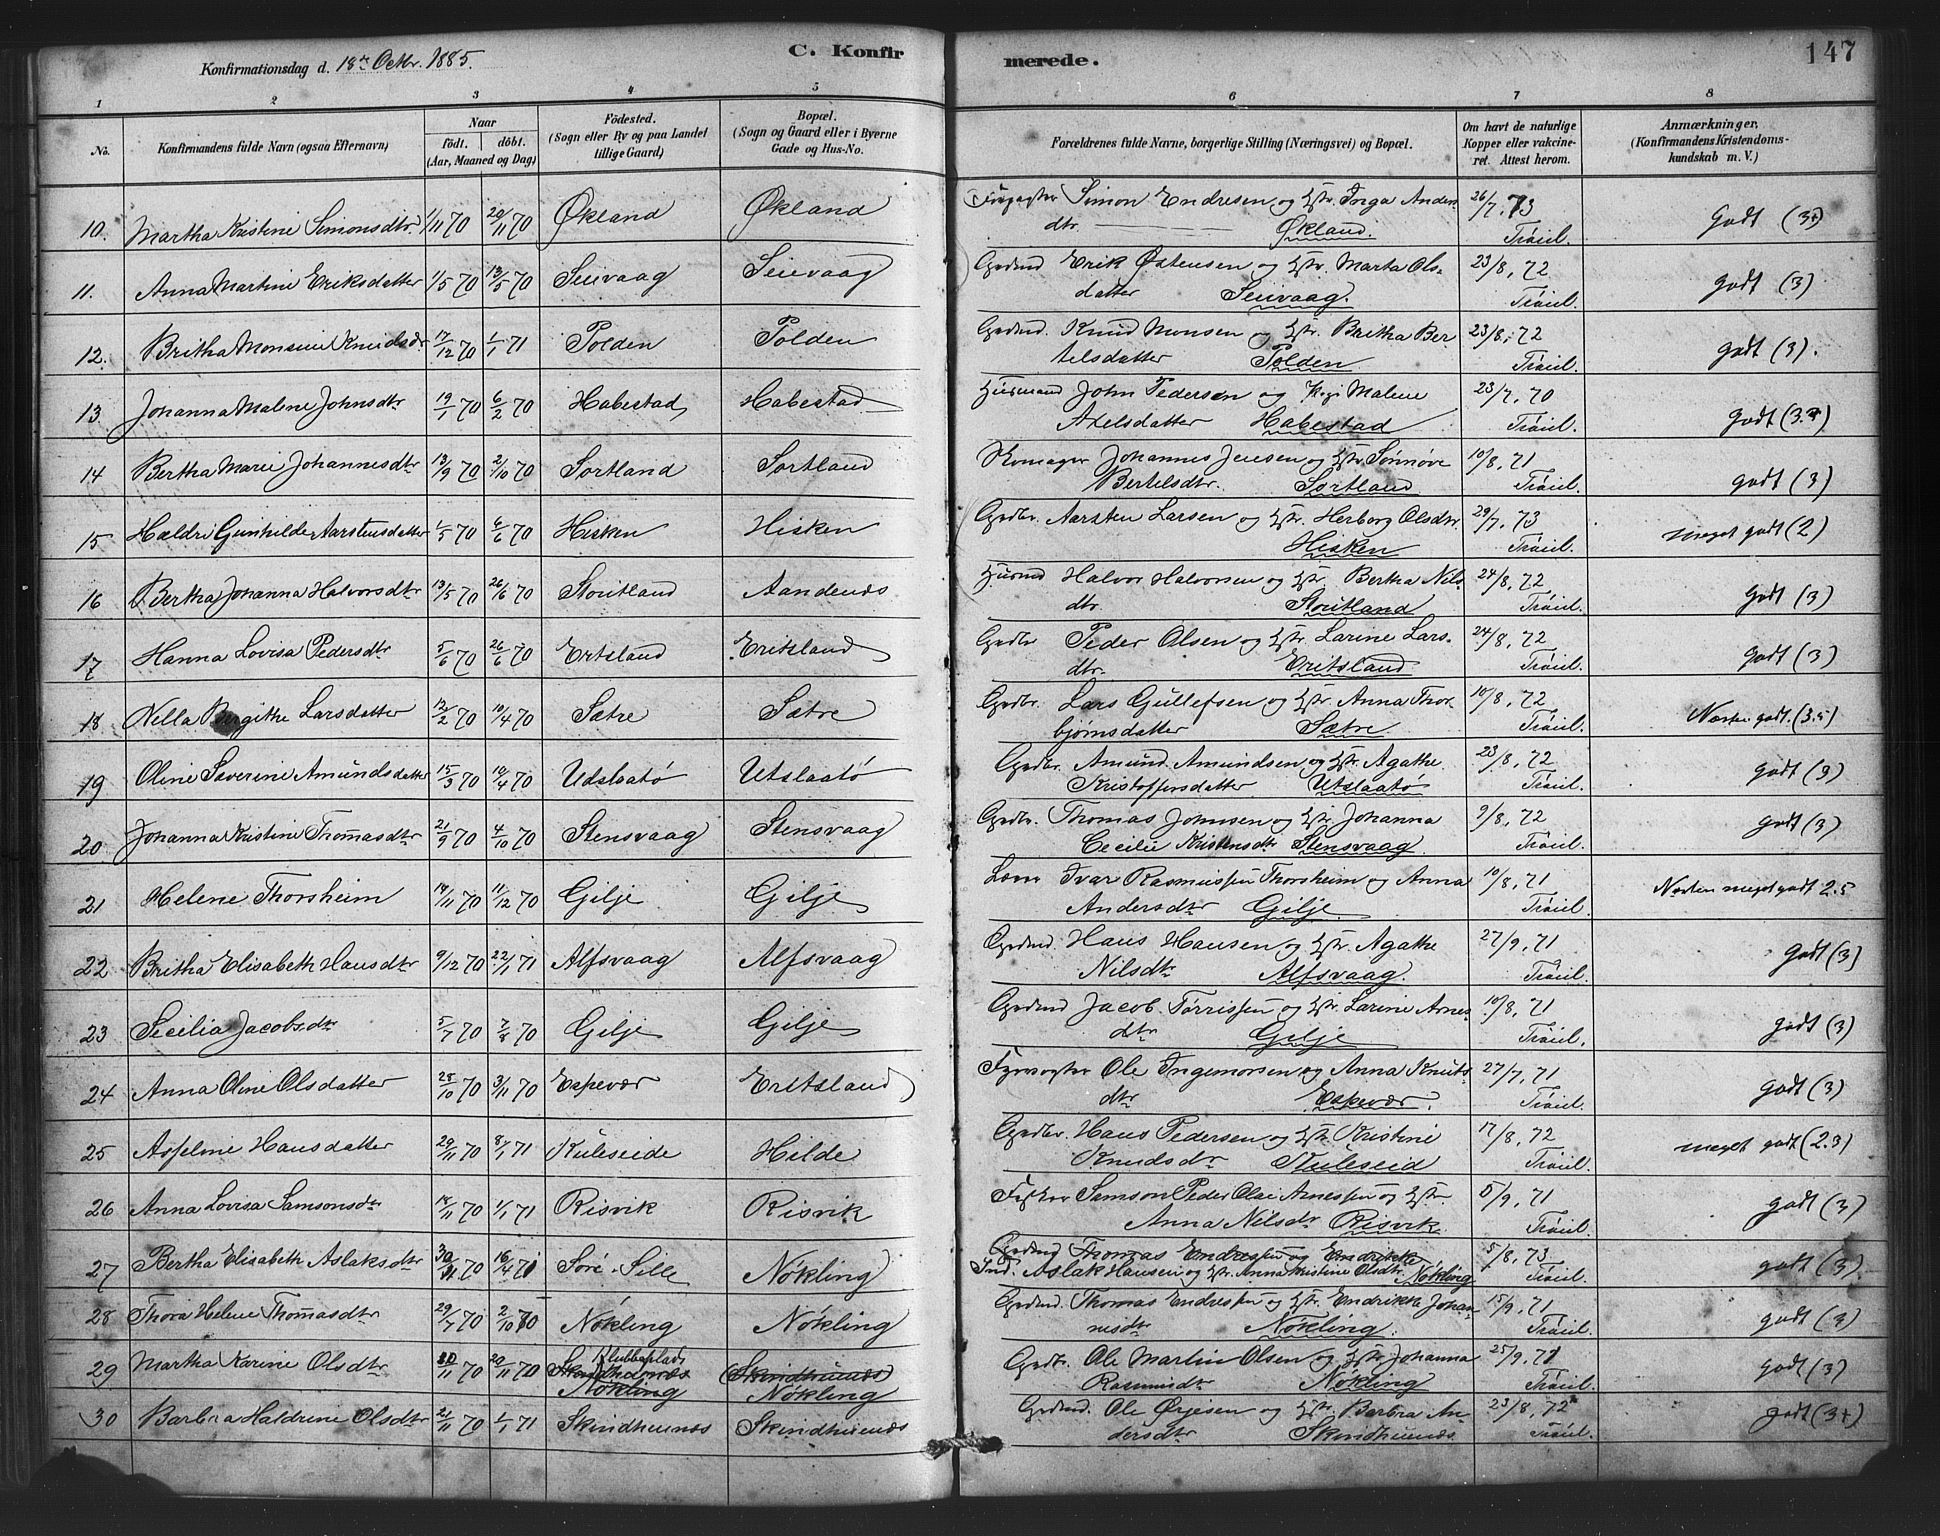 Konfirmationsdag d. 18de Octbr. 1885.
C. Konfirmerede.
147
1 2 3 4 5 6 7 8
No. Konfirmandens fulde Navn (ogsaa Efternavn) Naar födt. döbt. (Aar, Maaned og Dag) Födested. (Sogn eller By og paa Landet tillige Gaard) Bopæl. (Sogn og Gaard eller i Byerne Gade og Hus-No. Forældrenes fulde Navne, borgerlige Stilling (Næringsvei) og Bopæl. Om havt de naturlige Kopper eller vakcineret. Attest herom. Anmærkninger, (Konfirmandens Kristendomskundskab m. V.)
10. Martha Kristine Simonsdtr 1/11 70 20/11 70 Økland Økland Simon Endresen og Hstr. Torga Andersdtr. Økland. 26/7, 73 Godt (3+)
11. Anna Martine Eriksdatter 1/5 70 13/5 70 Seivaag Seievaag Gbrdmd Erik Østensen og Hstr. Marta Olsdatter Seivaag. 23/8, 72 godt (3)
12. Britha Monsine Knudsdr 17/12 70 1/1 71 Tolden Tolden Gbrdmd. Knud Monsen og Hstr. Britha Bertelsdatter Tolden 23/8, 72 godt (3).
13. Johanna Malene Johnsdtr 19/1 70 6/2 70 Habestad Habestad Husmand John Pedersen og Malene Axelsdatter Habestad 23/7, 70 Godt (3.+)
14 Bertha Marie Johannesdtr 13/9 70 2/10 70 Sortland Sortland Skomager Johannes Jensen og Hstr Sønnøve Bertelsdtr. Sortland 10/8, 71 godt (3)
15 Haldri Gunhilde Aarstensdatter 1/5 70 6/6 70 Hisken Hisken Gbrdbr. Aarsten Larsen og Hstr. Herborg Olsdtr. Hisken 29/7, 73 meget godt (2)
16 Bertha Johanna Halvorsdtr 13/5 70 26/6 70 Storitland Aandenæs Husmd Halvor Halvorsen og Hstr. Bertha Nilsdtr. Storitland 24/8, 72 godt (3)
17 Hanna Lovisa Pedersdtr 5/6 70 26/6 70 Ertsland Eritsland Gbrdbr Peder Olsen og Hstr. Larine Larsdtr. Eritsland 24/8, 72 godt (3)
18 Nella Bergithe Larsdatter 12/2 70 10/4 70 Sætre Sætre Gbrdbr. Lars Gullefsen og Hstr. Anna Thorbjørnsdatter Sætre. 10/8, 72 Næsten godt. (3.5)
19 Oline Severine Amundsdatter 15/3 70 10/4 70 Udslaatø Utslaatø Gbrdbr. Amund Amundsen og Hstr. Agathe Kristoffersdatter Utslaatø 23/8, 72 godt (3)
20 Johanna Kristine Thomasdtr 21/9 70 4/10 70 Stensvaag Stensvaag Gbrdbr. Thomas Johnsen og Hstr. Johanna Cecilie Kristensdtr Stensvaag 9/8, 72 godt (3)
21 Helene Thorsheim 14/11 70 11/12 70 Gilje Gilje Lærer Ivar Rasmussen Thorsheim og Anna Andersdtr Gilje. 10/8, 71 Næsten meget godt 2.5
22 Britha Elisabeth Hansdtr 9/12 70 22/1 71 Alfsvaag Alfsvaag Gbrdmd. Hans Hansen og Hstr. Agathe Nilsdtr Alfsvaag. 27/9, 71 godt (3)
23 Secilia Jacobsdtr 5/7 70 7/8 70 Gilje Gilje Gbrdmd Jacob Tørrissen og Hstr Larine Arnesdtr Gilje 10/8, 71 godt (3)
24 Anna Oline Olsdatter 28/10 70 3/11 70 Espevær Eritsland Ole Ingemorsen og Anna Knutsdtr Espevær. 27/7, 71 godt (3)
25 Asseline Hansdatter 29/11 70 8/1 71 Kuleseide Hilde Gbrdbr. Hans Pedersen og Hstr. Kristine Knudsdr Kuleseid 17/8, 72 meget godt (2.3)
26 Anna Lovisa Samsonsdtr 14/11 70 1/1 71 Risvik Risvik Fisker Samson Peder Olai Arnessen og Hstr Anna Nilsdr Risvik 5/9, 71 godt (3)
27 Bertha Elisabeth Aslaksdtr 30/11 70 16/4 71 Søre-Sille Nøkling Gbrdmd Thomas Endressen og Endrikke Ind. Aslak Hansen og Hstr. Anna Kristine Olsdtr. Nøkling 5/8, 73 godt (3).
28 Thora Helene Thomasdtr 29/7 70 2/10 70 Nøkling Nøkling Gbrdmd. Thomas Endressen og Hstr. Endrikke Johannesdtr Nøkling. 15/9, 71 godt (3)
29 Martha Karine Olsdtr 30/11 70 20/11 70 Klubbaplads Skindhuenæs Nøkling Skindhuenæs Nøkling Gbrdbr. Ole Martin Olsen og Hstr Johanna Rasmusdtr Nøkling 25/9, 71 godt (3)
30 Barbra Haldrine Olsdtr 21/11 70 1/1 71 Skindhuenæs Skindhuenæs Gbrdmd. Ole Ørjesen og Hstr. Berbra Andersdtr Skindhuenæs 23/8, 72 godt (3+)